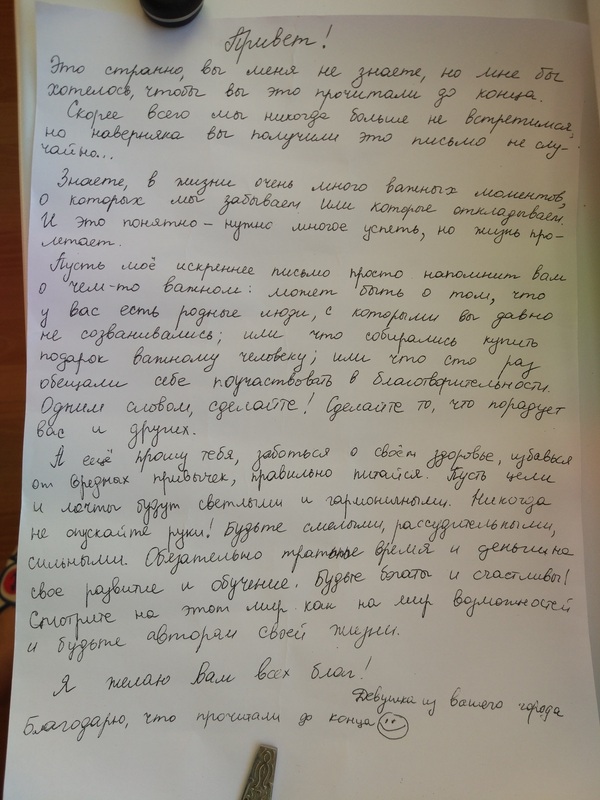 Привет!
Это странно, вы меня не знаете, но мне бы
хотелось, чтобы вы это прочитали до конца.
Скорее всего мы никогда больше не встретимся,
но наверняка вы получили это письмо не слу-
чайно...
Знаете, в жизни очень много важных моментов,
о которых мы забываем или которые откладываем.
И это понятно - нужно многое успеть, но жизнь про-
летает.
Пусть моё искреннее письмо просто напомнит вам
о чем-то важном: может быть о том, что
у вас есть родные люди, с которыми вы давно
не созванивались; или что собирались купить
подарок важному человеку; или что сто раз
обещали себе поучаствовать в благотворительности.
Одним словом, сделайте! Сделайте то, что порадует
вас и других.
А ещё прошу тебя, заботься о своём здоровье, избавься
от вредных привычек, правильно питайся. Пусть цели
и мечты будут светлыми и гармоничными. Никогда
не опускайте руки! Будьте смелыми, рассудительными,
сильными. Обязательно тратьте время и деньги на
свое развитие и обучение. Будьте богаты и счастливы!
Смотрите на этот мир как на мир возможностей
и будьте автором своей жизни.
Я желаю Вам всех благ!
Девушка из вашего города
Благодарю, что прочитали до конца